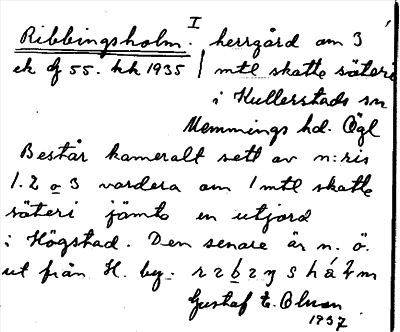 I
Ribbingsholm. herrgård om 3
ek Jf 55. kk 1935 / mtl skatte säteri
i Kullerstads sn
Memmings hd. Ögl
Består kameralt sett av n:ris
1. 2 o 3 vardera om 1 mtl skatte
säteri jämte en utjord
i Högstad. Den senare är n. ö.
ut från H. by.
Gustaf E. Olsson
1937